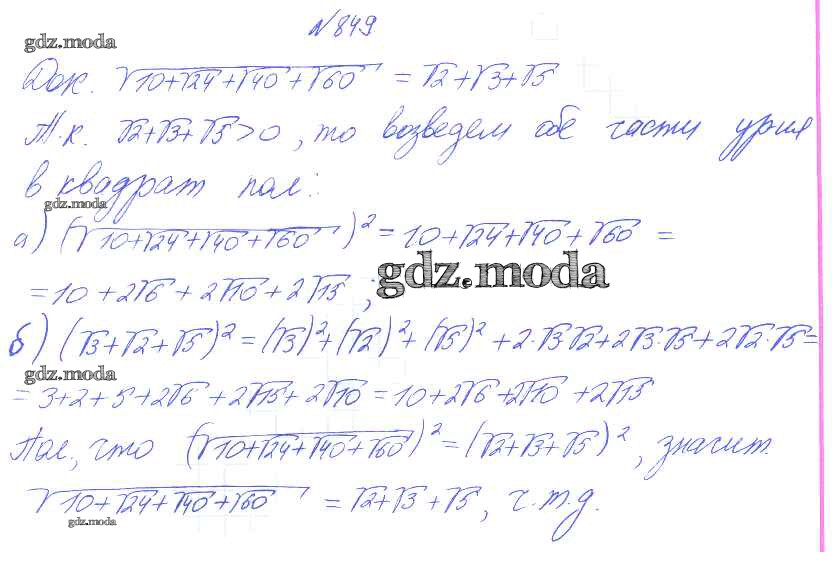 №849
gdz.moda
Док. √(10+√24+√40+√60) = √2+√3+√5
Т.к. √2+√3+√5>0, то возведем обе части ур-ия
в квадрат пол:
gdz.moda
а) (√(10+√24+√40+√60))² = 10+√24+√40+√60 =
gdz.moda
= 10+2√6+2√10+2√15;
б) (√3+√2+√5)² = (√3)²+(√2)²+(√5)²+2·√3·√2+2√3·√5+2√2·√5=
gdz.moda
= 3+2+5+2√6+2√15+2√10=10+2√6+2√10+2√15
Пол., что (√(10+√24+√40+√60))²=(√2+√3+√5)², значит
√(10+√24+√40+√60) = √2+√3+√5, ч.т.д.
gdz.moda